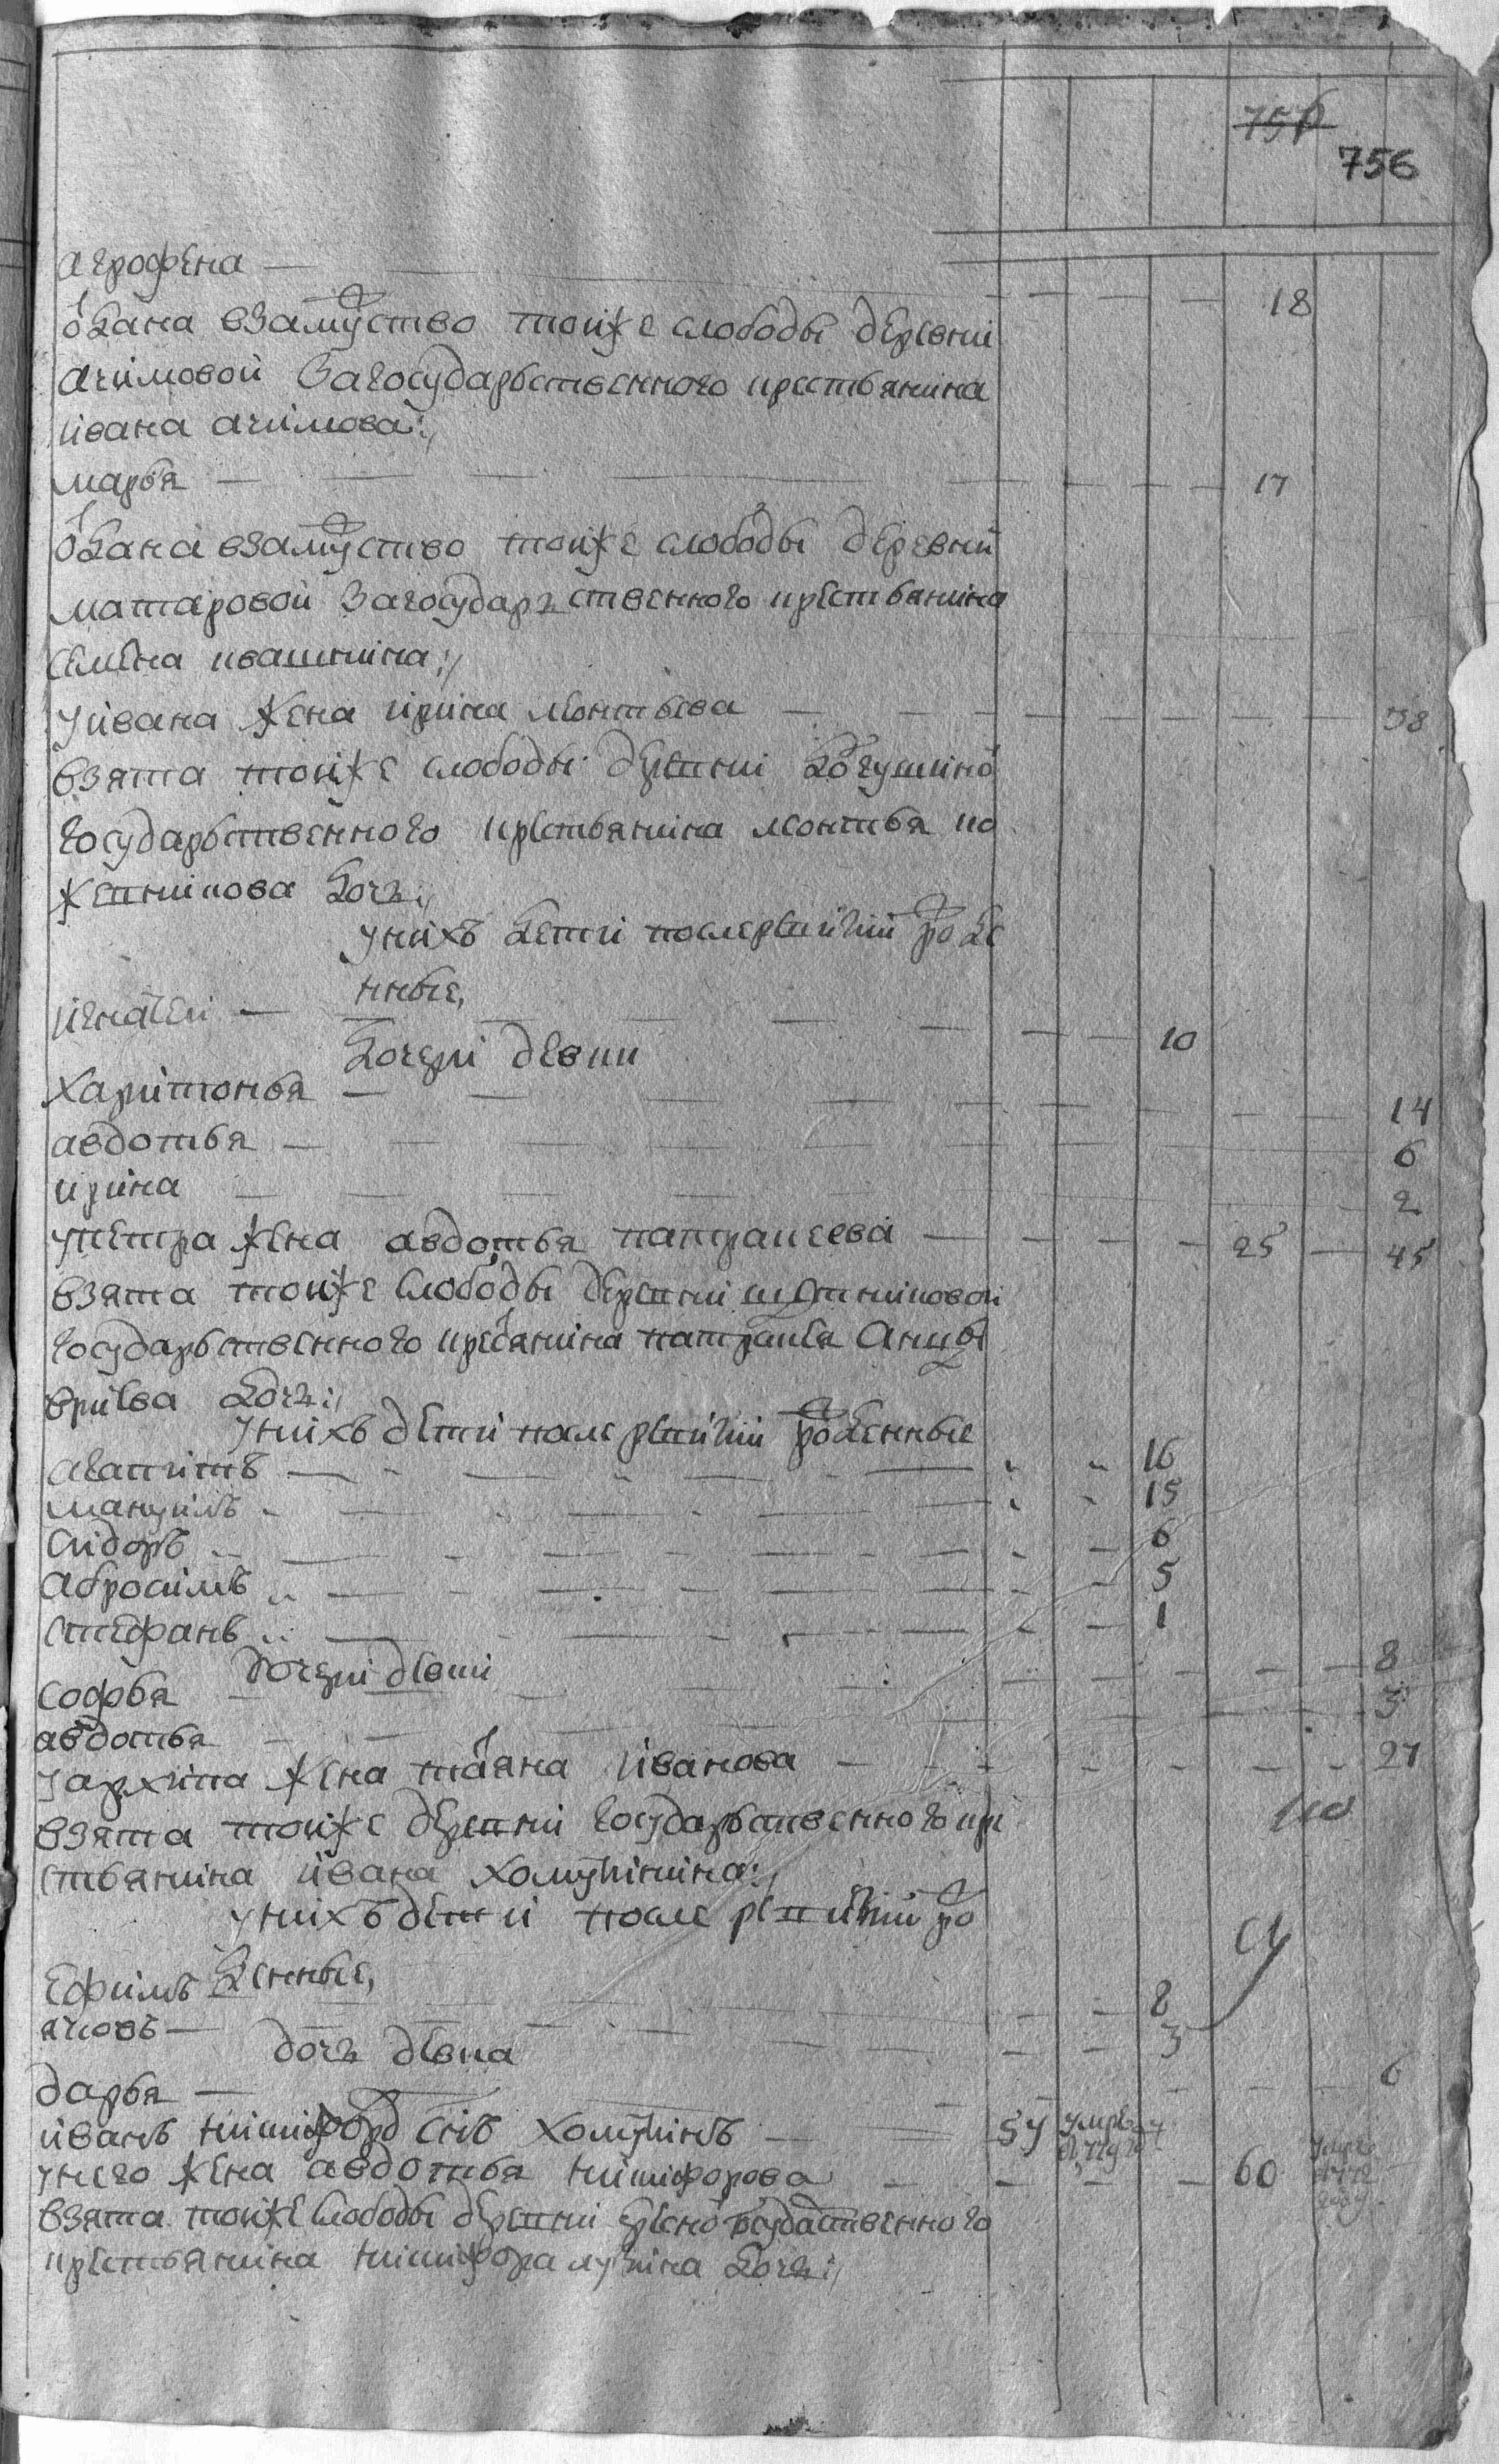 756
агрофена — 18
отдана взамуство тоиже слободы деревни
акимовой загосударьственного крестьянина
ивана акимова:,
марья — 17
отдана взамуство тоиже слободы деревни
матаровой загосударственного крестьянина
семена квашнина:,
уивана жена ирина леонтьева — 38
взята тоиже слободы деревни
государьственного крестьянина леонтья ко
жевникова дочь:,
унихъ дети послеревизии рожде
нные,
игнатеи — 10
дочери девки
харитонья — 14
авдотья — 6
ирина — 2
упетра жена авдотья патракеева — 25 — 45
взята тоиже слободы деревни
государьственного крестьянина патракея
дочь:,
унихъ дети после ревизии рожденные
агапитъ — 16
мануилъ — 15
сидоръ — 6
абросимъ — 5
стефанъ — 1
дочери девки
софья — 8
авдотья — 3
уархипа жена татьяна иванова — 27
взята тоиже деревни государьственного кре
стьянина ивана хомутинина:,
унихъ дети после ревизии ро
жденные,
ефимъ — 8
яковъ — 3
дочь девка
дарья — 6
иванъ никифоровъ снъ хомутинъ — 54 умре
унего жена авдотья никифорова — 60
взята тоиже слободы деревни государственного
крестьянина никифора дочь:,